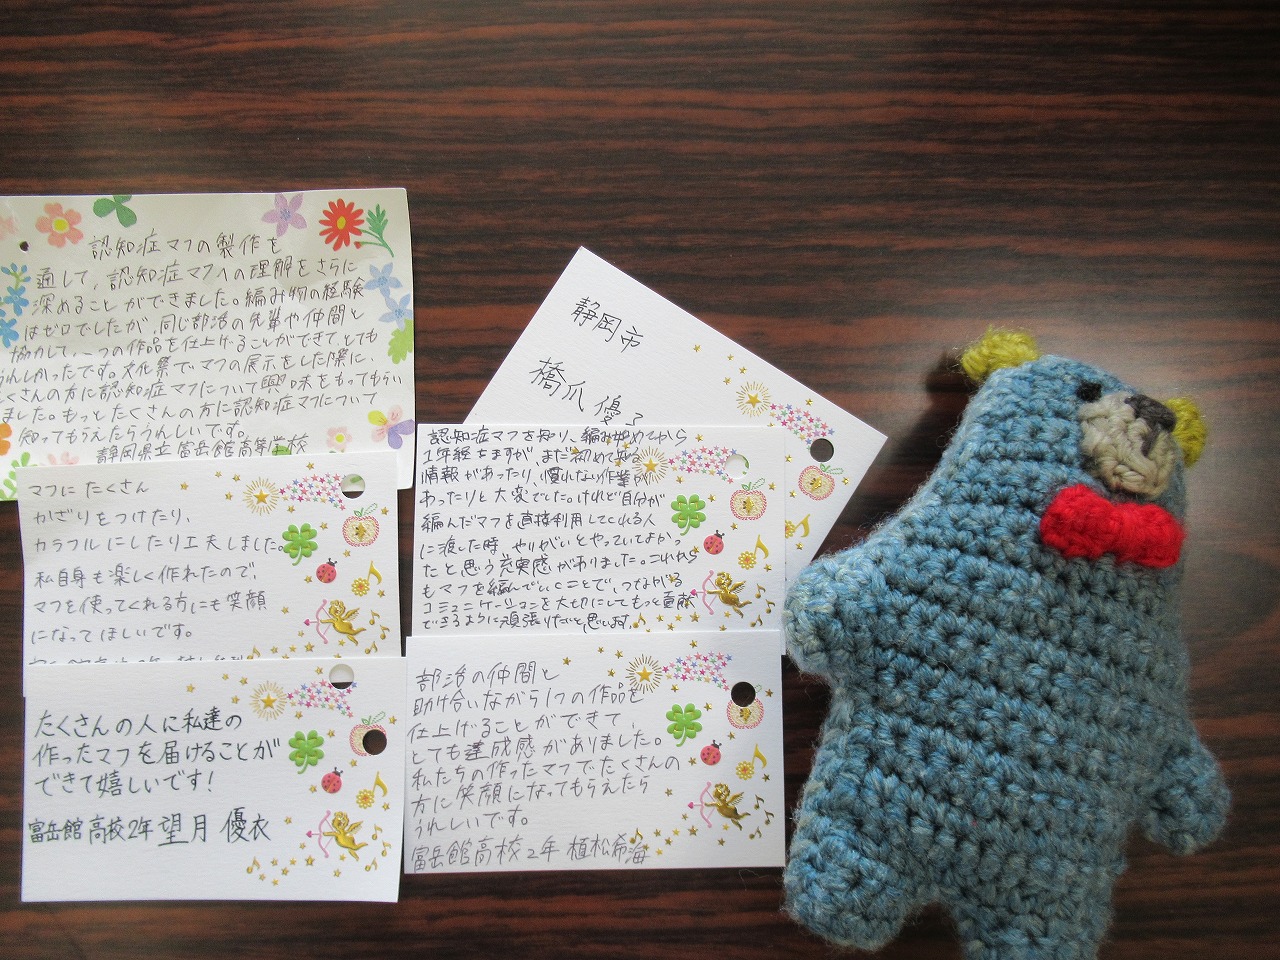 認知症マフの製作を
通して、認知症マフへの理解をさらに
深めることができました。編み物の経験
はゼロでしたが、同じ部活の先輩や仲間と
協力して、一つの作品を仕上げることができて、とても
うれしかったです。文化祭でマフの展示をした際に、
たくさんの方に認知症マフについて興味をもってもらい
ました。もっとたくさんの方に認知症マフについて
知ってもらえたらうれしいです。
静岡県立富岳館高等学校
静岡市
橋爪 優
マフにたくさん
かざりをつけたり、
カラフルにしたり工夫しました。
私自身も楽しく作れたので、
マフを使ってくれる方にも笑顔
になってほしいです。
認知症マフを知り、編み始めてから
1年経ちますが、まだ初めて知る
情報があったり、慣れない作業が
あったりと大変でした。けれど自分が
編んだマフを直接利用してくれる人
に渡した時、やりがいとやっていてよかっ
たと思う充実感がありました。これから
もマフを編んでいくことで、つながる
コミュニケーションを大切にしてもっと貢献
できるように頑張りたいと思います。
たくさんの人に私達の
作ったマフを届けることが
できて嬉しいです!
富岳館高校2年 望月 優衣
部活の仲間と
助け合いながら1つの作品を
仕上げることができて、
とても達成感がありました。
私たちの作ったマフでたくさんの
方に笑顔になってもらえたら
うれしいです。
富岳館高校2年 植松希海